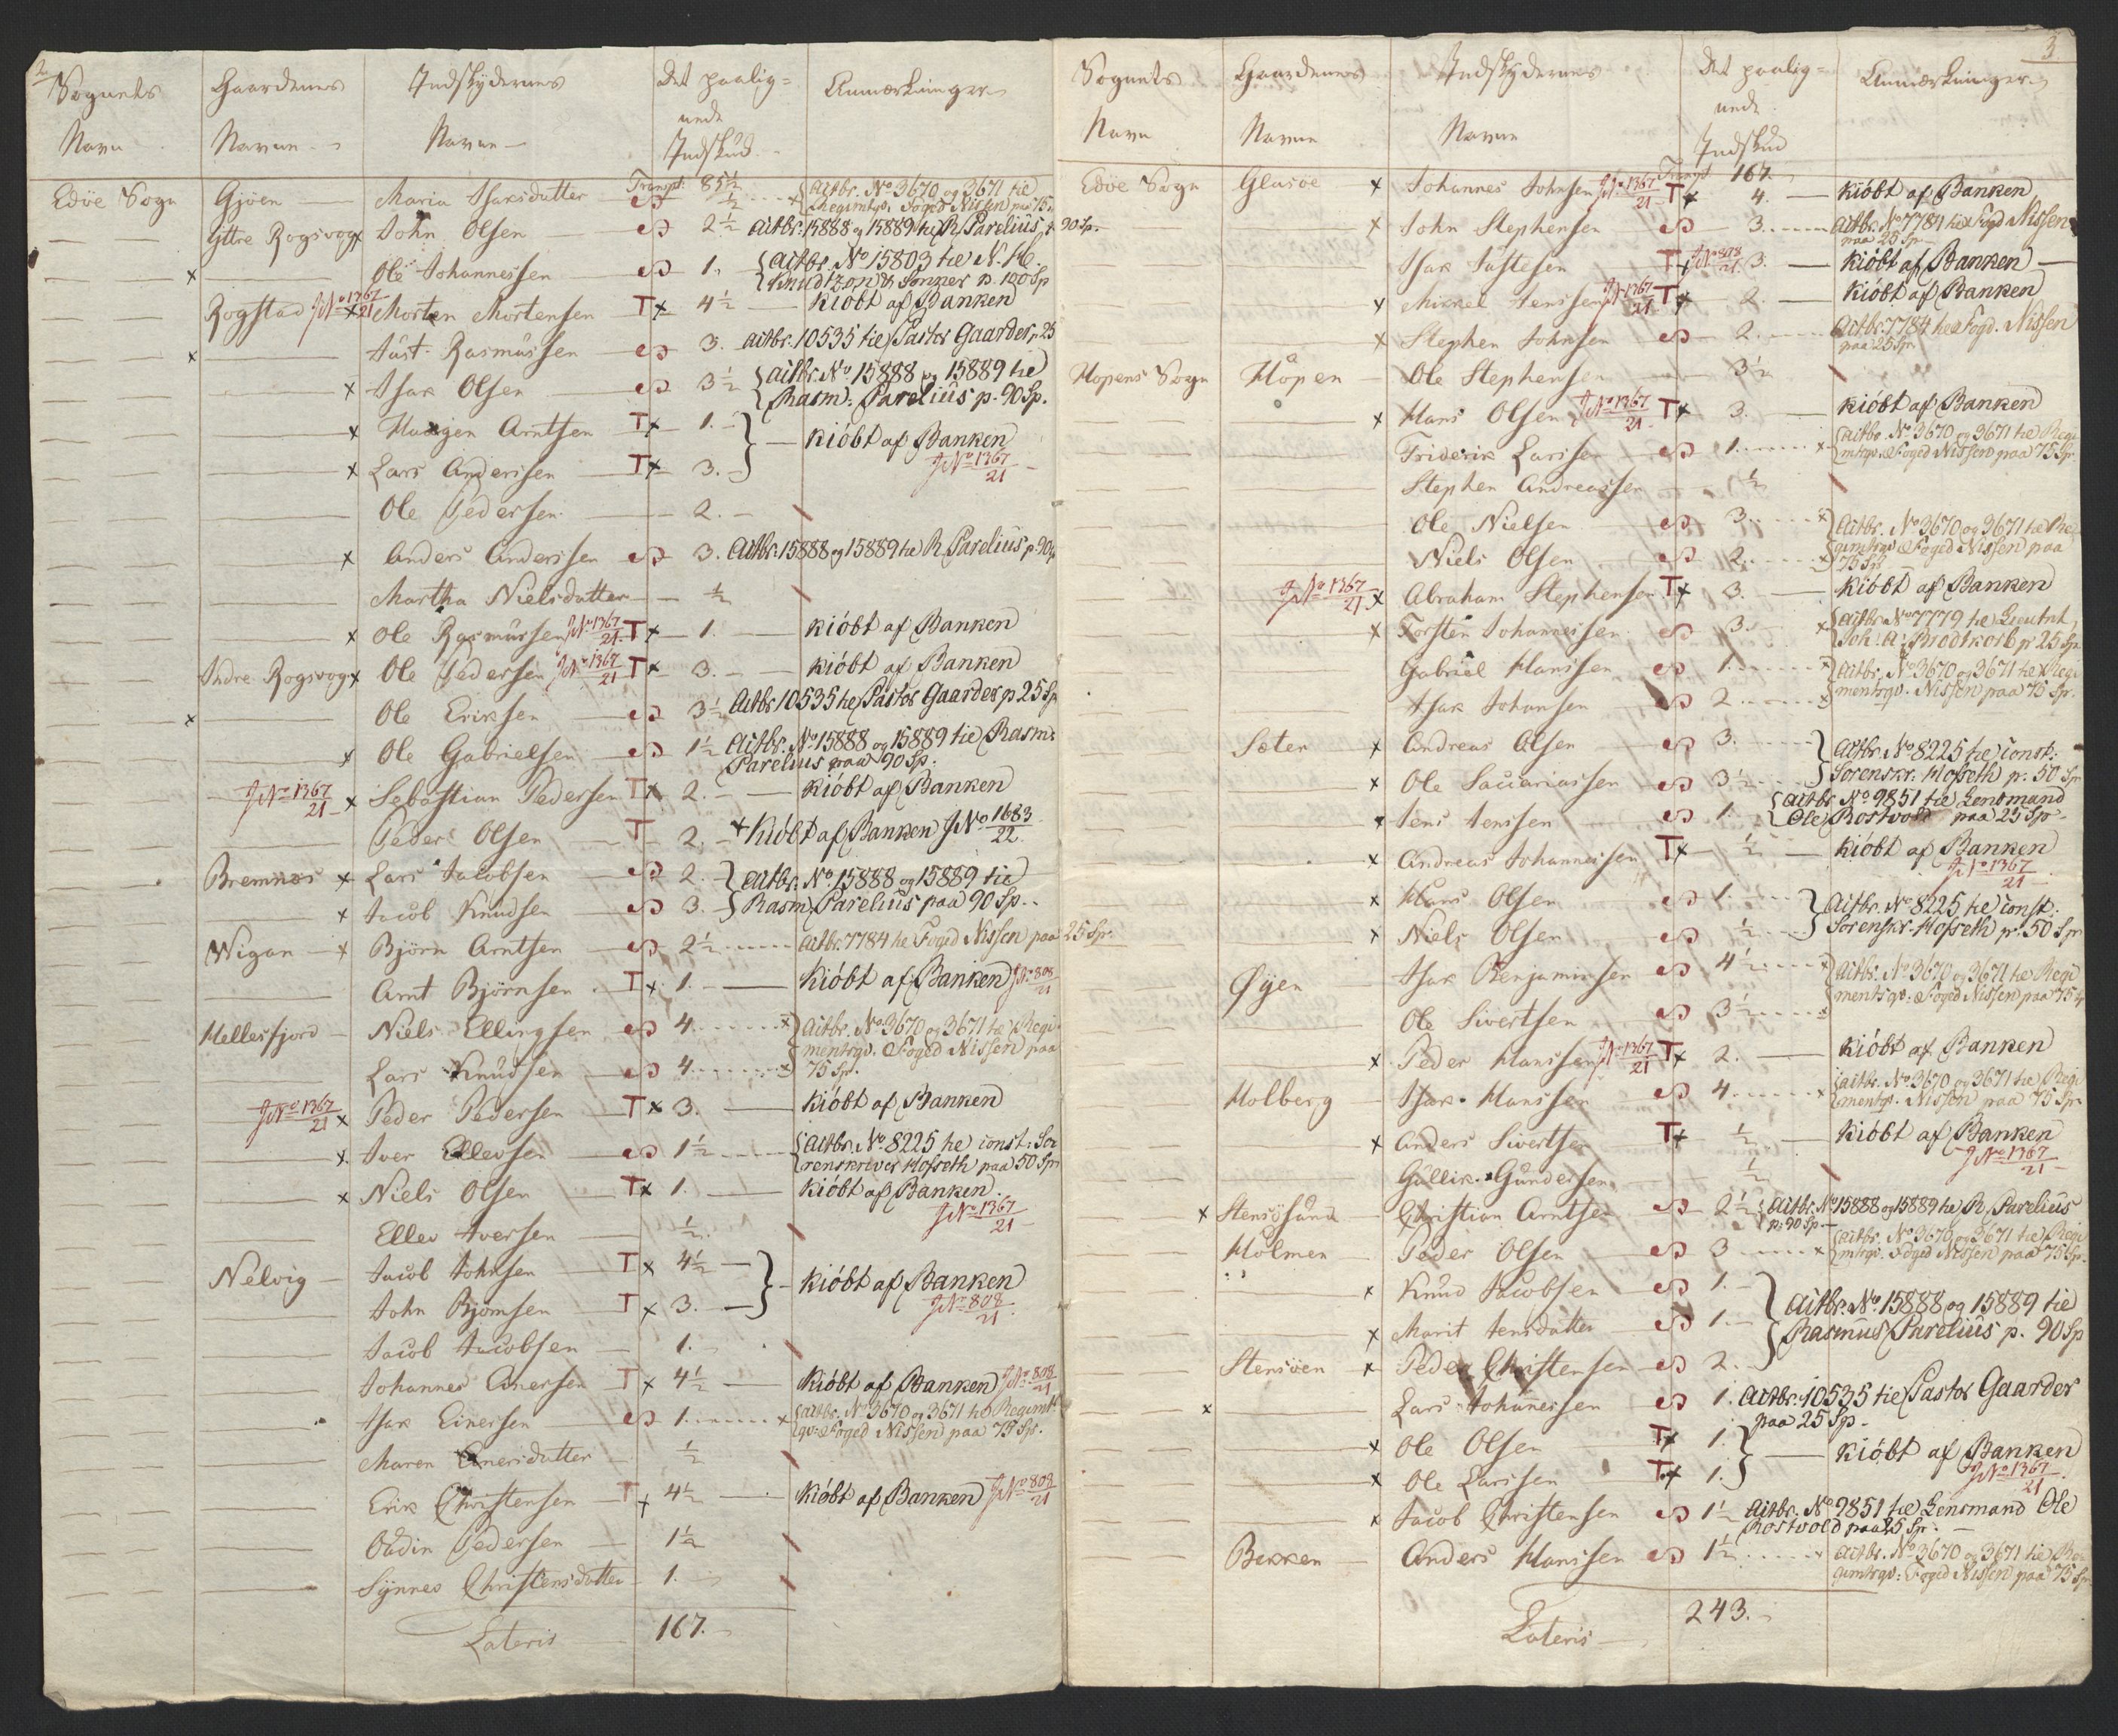 2
Sognets Navn | Gaardenes Navne | Indskydernes Navne | Det paalignede Indskud | Anmærkninger
Transpt: 85½
Edöe Sogn | Gjöen | Maria Isaksdatter | ½ | Actbr. No 3670 og 3671 til Regimtsqv. Foged Nissen paa 75
Yttre Rogsvog | x John Olsen | 2½ | Actbr: 15888 og 15889 til R. Parelius, p 90 Sp.
x Ole Johannessen | 1. | Actbr. No 15803 til N. H. Knudtzon & Sönner p. 100 Sp
Rogstad | J No 1367/21 x Morten Mortensen | T x 4½ | Kiöbt af Banken
x Just Rasmussen | 3. | actbr. 10535 til Pastor Gaarder p 25
x Isak Olsen | 3½ | Actbr. No 15888 og 15889 til Rasm: Parelius p. 90 Sp.
x Haagen Arntsen | T x 1. | Kiöbt af Banken
x Lars Anderssen | T x 3. | J No 1367/21
Ole Pedersen | 2.
x Anders Anderssen | 3. | Actbr. 15888 og 15889 til R. Parelius p. 90
Martha Nielsdatter | ½
x Ole Rasmussen J No 1367/21 | T x 1. | Kiöbt af Banken
Indre Rogsvog | x Ole Pedersen J No 1367/21 | T x 3. | Kiöbt af Banken
x Ole Eriksen | 3½ | Actbr 10535 til Pastor Gaarder p 25 Sp
x Ole Gabrielsen | 1½ | Actbr. No 15888 og 15889 til Rasm: Parelius paa 90 Sp.
J No 1367/21 x Sebastian Pedersen | T x 2. | Kiöbt af Banken
Peder Olsen | T 2. | x Kiöbt af Banken J No 1683/22
Bremnes | x Lars Jacobsen | 2. | Actbr. No 15888 og 15889 til
x Jacob Knudsen | 3. | Rasm. Parelius paa 90 Sp.
Wigan | x Björn Arntsen | 2½ | actbr. 7784 til Foged Nissen paa 25 Sp.
Arnt Björnsen | T x 1. | Kiöbt af Banken J No 808/21
Hellesfjord | Niels Ellingsen | 4. | x Actbr. No 3670 og 3671 til Regimentsqv. Foged Nissen paa
Lars Knudsen | 4. | x 75 Sp.
J No 1367/21 x Peder Pedersen | T x 3. | Kiöbt af Banken
x Iver Ellevsen | 1½ | Actbr. No 8225 til const: Sorenskriver Hofseth paa 50 Sp
x Niels Olsen | T x 1. | Kiöbt af Banken J No 1367/21
Ellev Iversen | ½
Nelvig | Jacob Johnsen | T x 4½ | Kiöbt af Banken
John Björnsen | T x 3. | J No 808/21
Jacob Jacobsen | 1.
Johannes Einersen | T x 4½ | Kiöbt af Banken J No 808/21
Isak Einersen | 1. | x actbr. No 3670 og 3671 til Regimtsqv: Foged Nissen paa 75 Sp.
Maren Einersdatter | ½
Erik Christensen | T x 4½ | Kiöbt af Banken J No 808/21
Oudin Pedersen | 1½
Synnes Christensdatter | 1.
Lateris | 167.
3
Sognets Navn | Gaardenes Navne | Indskydernes Navne | Det paalignede Indskud | Anmærkninger
Transpt 167.
Edöe Sogn | Glasöe | x Johannes Johnsen J No 1367/21 | T x 4. | Kiöbt af Banken
x John Stephensen | 3. | Actbr. No 7784 til Fogd Nissen paa 25 Sp
Isak Justesen | T x J No 808/21 3. | Kiöbt af Banken
x Mikkel Jenssen J No 1367/21 | T x 2. | Kiöbt af Banken
x Stephen Johnsen | 2. | Actbr 7784 til Fogd. Nissen paa 25 Sp
Hopens Sogn | Hopen | Ole Stephensen | 3½
x Hans Olsen J No 1367/21 | T x 3. | Kiöbt af Banken
Friderik Larssen | 1. | x Actbr. No 3670 og 3671 til Regimtsqv. Foged Nissen paa 75 Sp
Stephen Andreassen | ½
Ole Nielsen | 3. | x Actbr. No 3670 og 3671 til Regimtsqv. Foged Nissen paa
Niels Olsen | 2. | x 75 Sp
J No 1367/21 x Abraham Stephensen | T x 3. | Kiöbt af Banken
x Torsten Johannessen | 3. | x Actbr No 7779 til Lieutnt, Joh: A: Brodtkorb p 25 Sp
Gabriel Hanssen | 1. | x Actbr. No 3670 og 3671 til Regi
Isak Johansen | 2. | x mentsqv. Nissen paa 75 Sp.
Sæter | x Andreas Olsen | 3. | Actbr. No 8225 til const:
x Ole Sacariassen | 3½ | Sorenskr. Hofseth p. 50 Sp
x Jens Jenssen | 1. | Actbr No 9851 til Lensmand Ole Rostvold paa 25 Sp
x Andreas Johannessen | T x ½ | Kiöbt af Banken J No 1367/21
x Hans Olsen | 1. | Actbr. No 8225 til const:
x Niels Olsen | ½ | Sorenskr. Hofseth p. 50 Sp
Øyen | Isak Benjaminsen | 4½ | x Actbr. No 3670 og 3671 til Regi
Ole Sivertsen | 3½ | x mentsqv: Foged Nissen paa 75
x Peder Hanssen J No 1367/21 | T x 2. | Kiöbt af Banken
Holberg | Isak Hanssen | 4. | x actbr. No 3670 og 3671 til Regimentsq. Nissen paa 75 Sp
x Anders Sivertsen | T x ½ | Kiöbt af Banken J No 1367/21
Gullik Gundersen | ½
x Stensösund | Christian Arntsen | 2½ | Actbr. No 15888 og 15889 til R. Parelius p. 90 Sp
Holmen | Peder Olsen | 3 | x actbr. No 3670 og 3671 til Regimtsqv. Foged Nissen paa 75 Sp.
x Knud Jacobsen | 1. | Actbr. No 15888 og 15889 til
x Marit Jensdatter | 1. | Rasmus Parelius p. 90 Sp
Stensöen | x Peder Christensen | 2.
x Lars Johannessen | 1. | Actbr. 10535 til Pastor Gaarder paa 25 Sp.
x Ole Olsen | T x 1. | Kiöbt af Banken
x Ole Larssen | T x 1. | J No 1367/21
x Jacob Christensen | 1½ | Actbr. No 9851 til Lensmand Ole Rostvold paa 25 Sp.
Bekken | Anders Hanssen | 1½ | x actbr. No 3670 og 3671 til Regimtsqv: Foged Nissen paa 75 Sp
Lateris | 243.